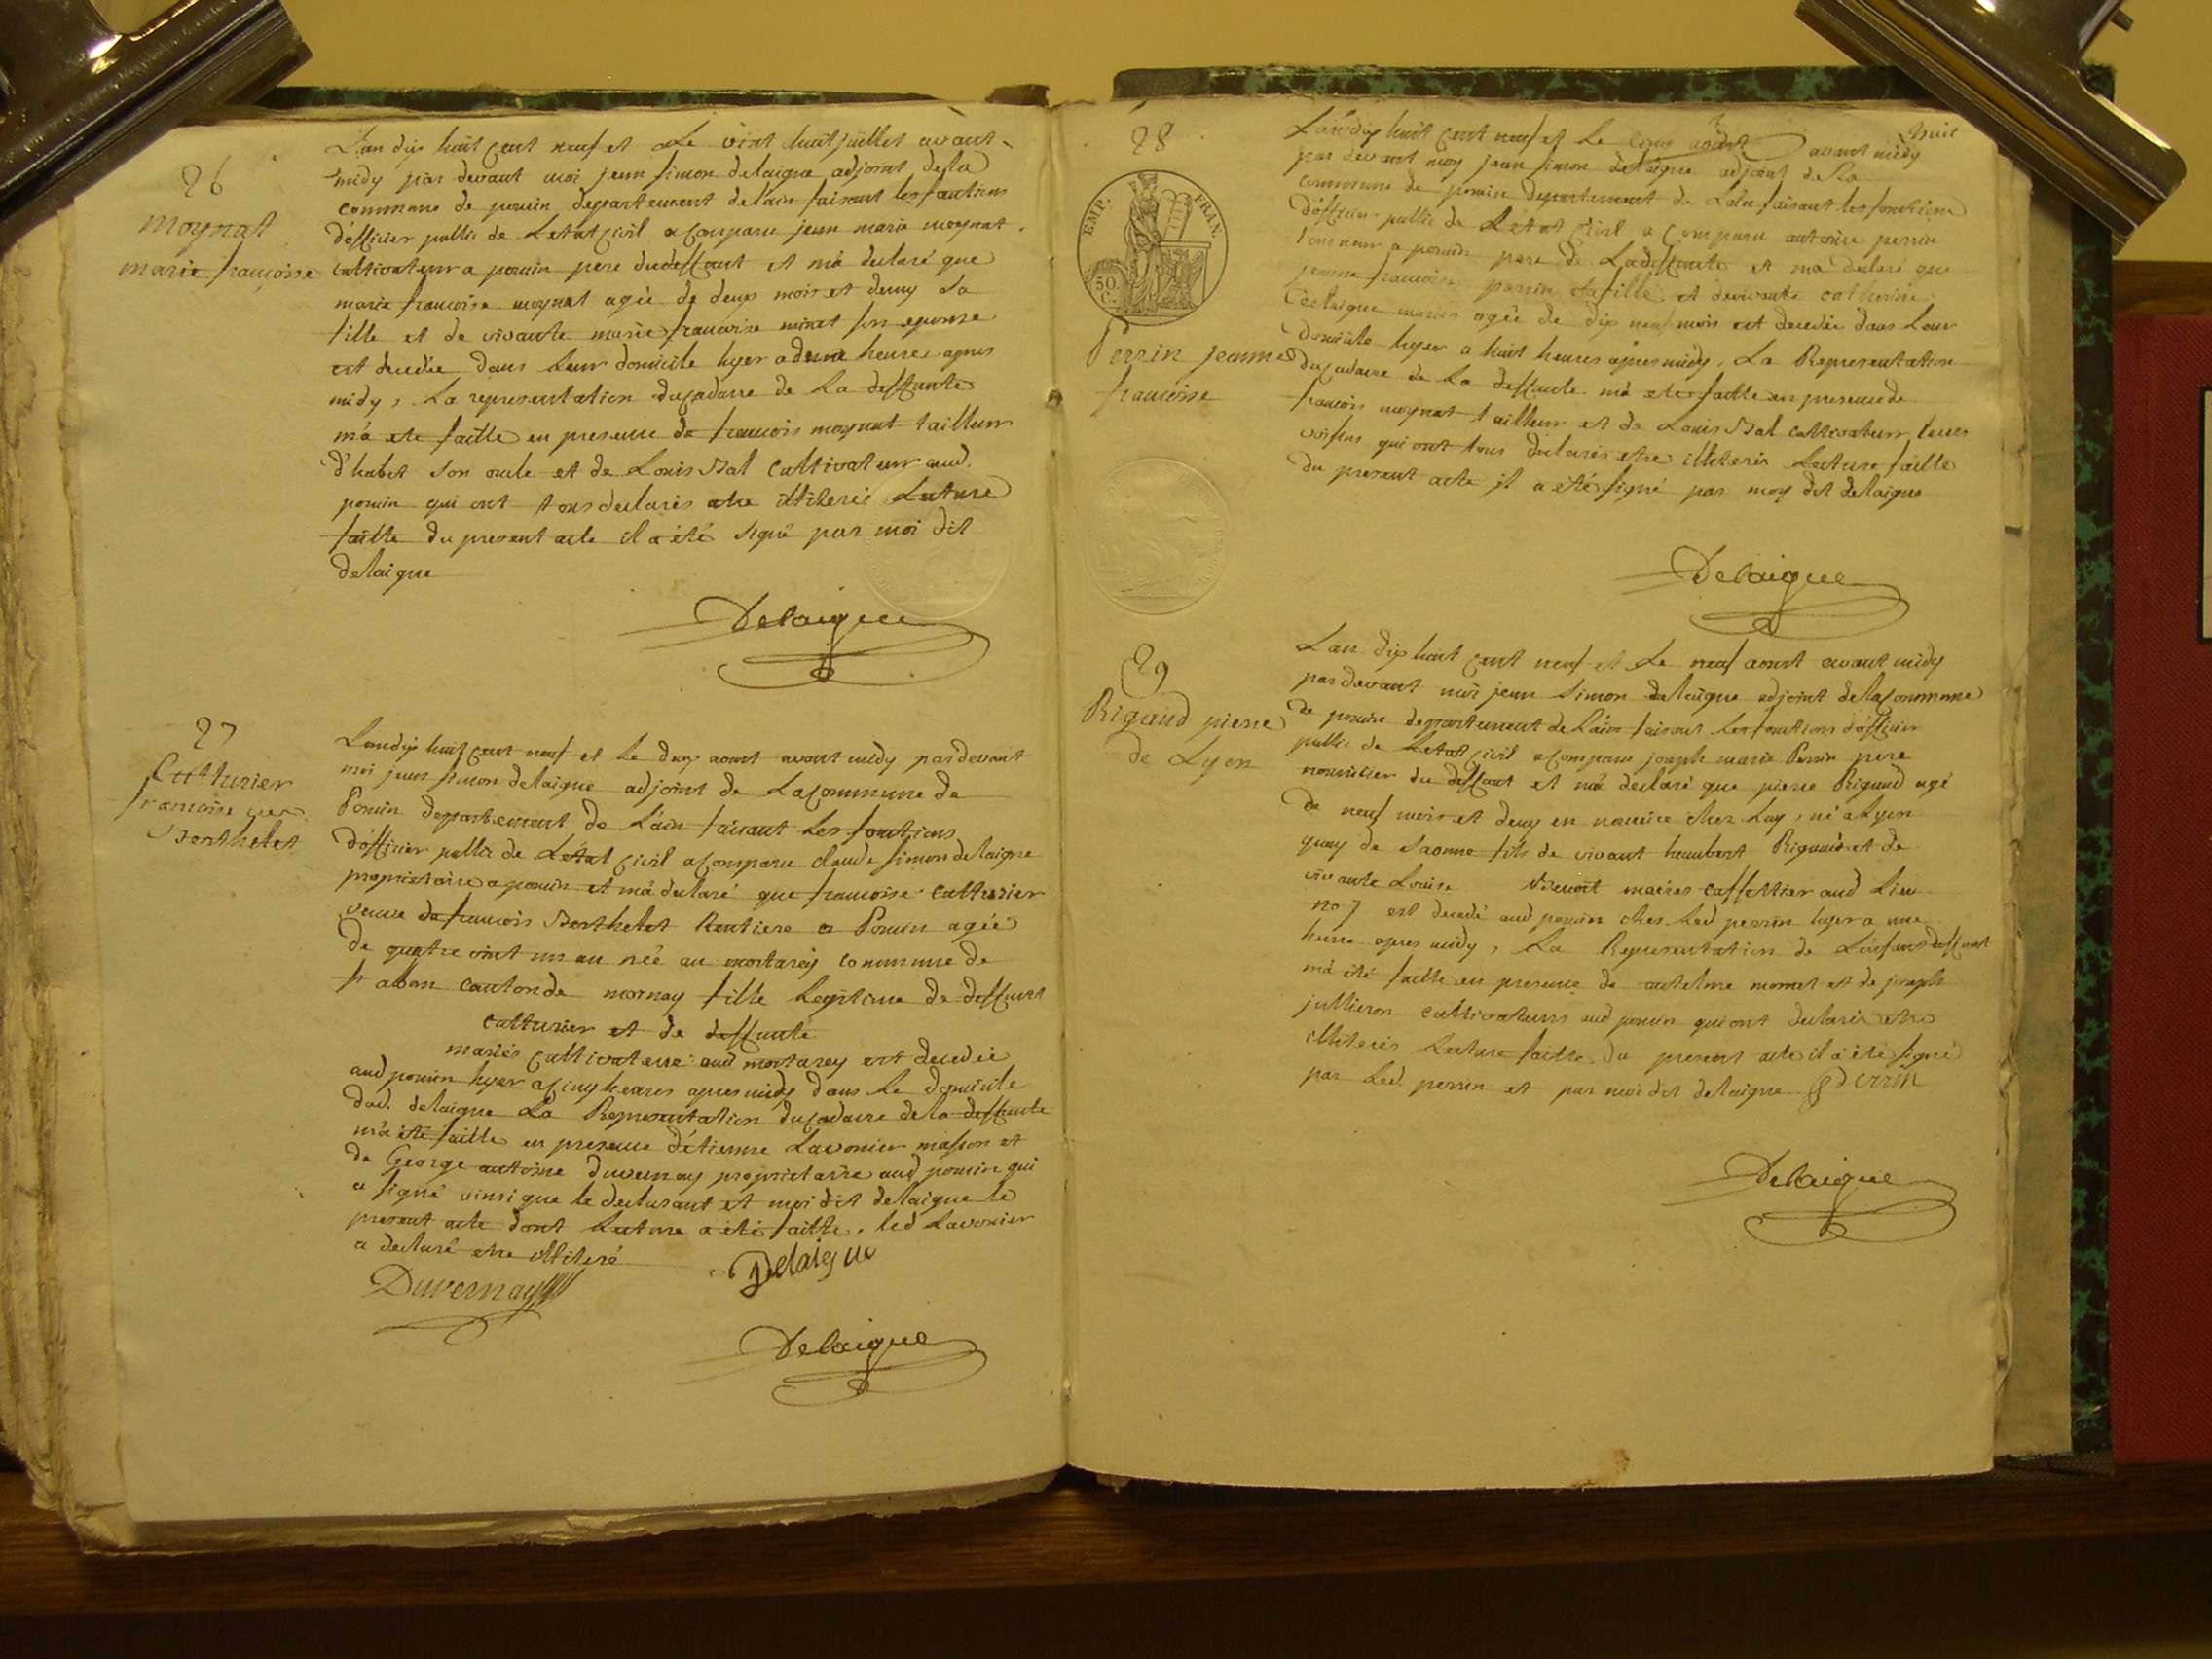 26
moynat
marie francoise
L'an dix huit cent neuf et Le vint huit juillet avant
midy par devant moi jean simon delaigue adjoint de la
commune de poncin departement de l'ain faisant les fonctions
d'officier public de Letat civil a comparu jean marie moynat
cultivateur a poncin pere du deffunt et m'a declaré que
marie francoise moynat agée de deux mois et demy sa
fille et de vivante marie francoise minet son epouse
est decedée dans leur domicile hyer a d'une heure apres
midy, La representation du cadavre de La deffunte
m'a ete faitte en presence de francois moynat tailleur
d'habit son oncle et de Louis Bal cultivateur aud.
poncin qui ont tous declarés etre illiterés Lecture
faitte du present acte il a été signé par moi dit
delaigue
Delaigue
27
Cutturier
francoise veuve
Berthelet
L'an dix huit cent neuf et le deux aoust avant midy par devant
moi jean simon delaigue adjoint de La commune de
Poncin departement de L'ain faisant Les fonctions
d'officier public de Létat civil a comparu claude simon delaigue
proprietaire a poncin et m'a declaré que francoise cutturier
veuve de francois Berthelet Rentiere a Poncin agée
de quatre vint un an née au mortarey commune de
st alban canton de mornay fille Legitime de deffunt
cutturier et de deffunte
mariés cultivateurs aud mortarey est decedée
aud poncin hyer a cinq heures apres midy dans Le domicile
dud. delaigue La Representation du cadavre de la deffunte
m'a été faitte en presence d'étienne Lavonier masson et
de George antoine duvernay proprietaire aud poncin qui
a signé ainsi que le declarant et moi dit delaigue le
present acte dont Lecture a été faitte. led Lavonier
a declaré etre illiteré
Duvernay
Delaigue
Delaigue
28
EMP. FRAN.
50 C.
Perrin jeanne
francoise
L'an dix huit cent neuf et Le cinq aoust huit avant midy
par devant moy jean simon delaigue adjoint de La
commune de poncin departement de L'ain faisant les fonctions
d'officier public de L'état civil a comparu antoine perrin
a poncin pere de La deffunte et m'a declaré que
jeanne francoise perrin sa fille et de vivante catherine
delaigue mariés agée de dix neuf mois est decedée dans Leur
domicile hyer a huit heures apres midy, La Representation
du cadavre de La deffunte m'a ete faitte en presence de
francois moynat tailleur et de Louis Bal cultivateur leurs
voisins qui ont tous declarés etre illiterés Lecture faitte
du present acte il a eté signé par moy dit delaigue
Delaigue
29
Rigaud pierre
de Lyon
L'an dix huit cent neuf et Le neuf aoust avant midy
par devant moi jean simon delaigue adjoint de la commune
de poncin departement de L'ain faisant Les fonctions d'officier
public de Letat civil a comparu joseph marie Perrin pere
nourricier du deffunt et m'a declaré que pierre Rigaud agé
de neuf mois et demy en nourrice chez Luy, né a Lyon
quay de Saonne fils de vivant humbert Rigaud et de
vivante Louise Benoit mariés caffettier aud Lieu
no 7 est decedé aud poncin ches Led perrin hyer a une
heure apres midy, La Representation de L'enfant deffunt
m'a été faitte en presence de antelme mornet et de joseph
jullieron cultivateurs aud poncin qui ont declarés etre
illiterés Lecture faitte du present acte il a été signé
par Led. perrin et par moi dit delaigue Perrin
Delaigue